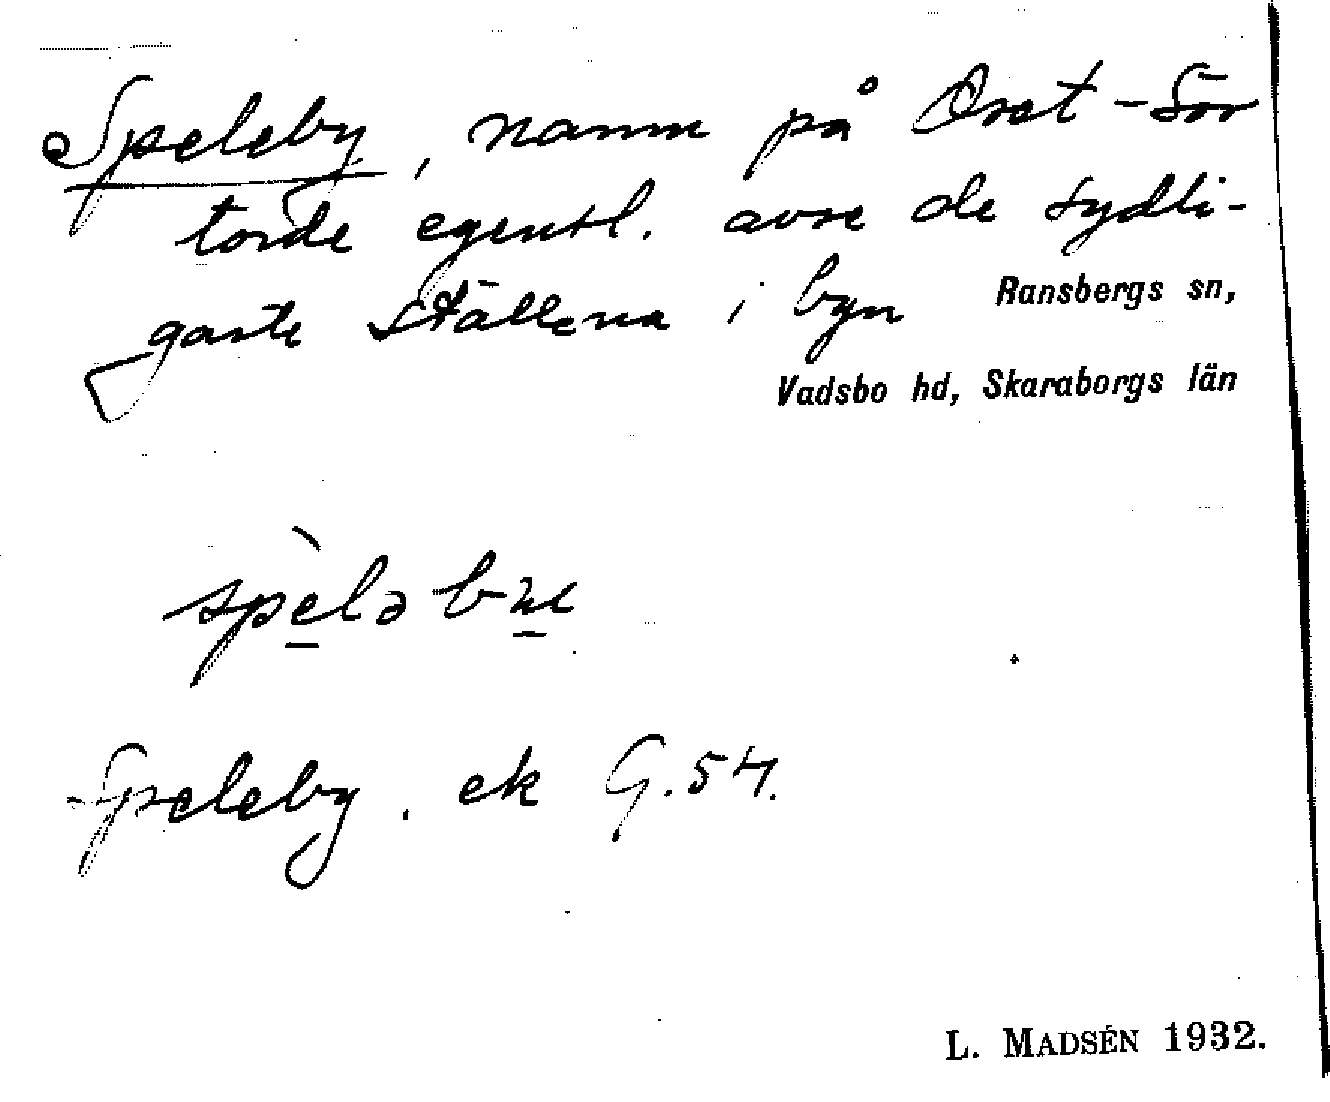 Speleby, namn på Orret-Sör
torde egentl. avse de sydli-
gaste ställena i byn Ransbergs sn,
Vadsbo hd, Skaraborgs län
Speleby. ek G. 54.
L. MADSÉN 1932.